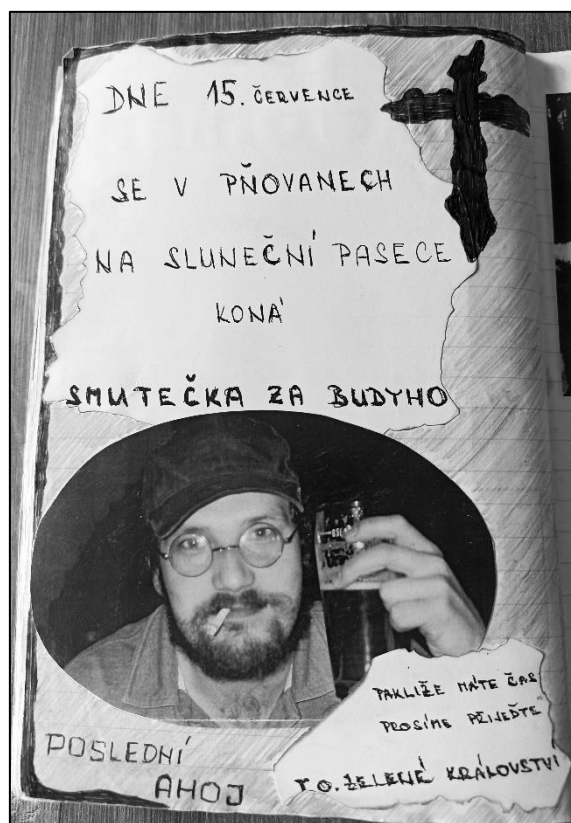 DNE 15. ČERVENCE
SE V PŇOVANECH
NA SLUNEČNÍ PASECE
KONÁ
SMUTEČKA ZA BUDYHO
PAKLIŽE MÁTE ČAS
PROSÍME PŘIJEĎTE
POSLEDNÍ
AHOJ
T.O. ZELENÉ KRÁLOVSTVÍ